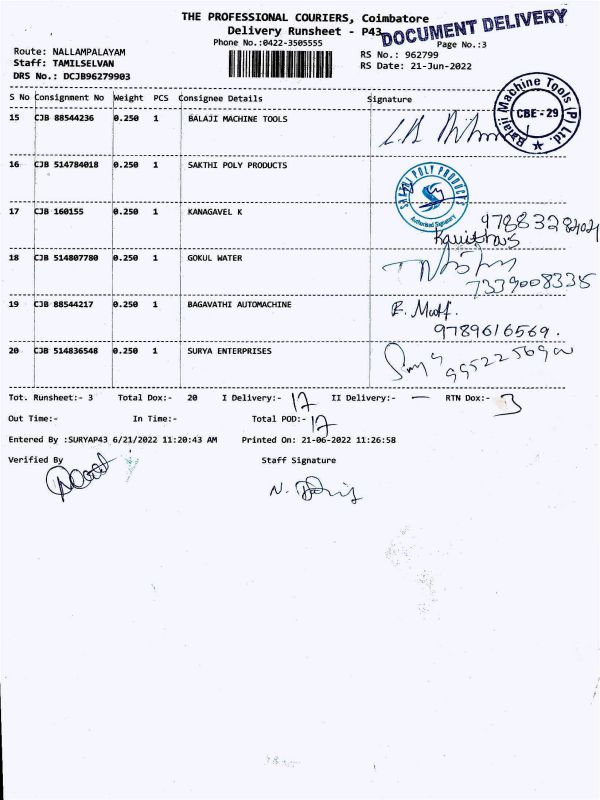 THE PROFESSIONAL COURIERS, Coimbatore
Delivery Runsheet - P43
DOCUMENT DELIVERY
Phone No.:0422-3505555
Page No.:3
Route: NALLAMPALAYAM
RS No.: 962799
Staff: TAMILSELVAN
RS Date: 21-Jun-2022
DRS No.: DCJB96279903
S No Consignment No Weight PCS Consignee Details Signature
15 CJB 88544236 0.250 1 BALAJI MACHINE TOOLS
Balaji Machine Tools (P) Ltd.
CBE - 29
16 CJB 514784018 0.250 1 SAKTHI POLY PRODUCTS
SAKTHI POLY PRODUCTS
Authorised Signatory
17 CJB 160155 0.250 1 KANAGAVEL K
18 CJB 514807780 0.250 1 GOKUL WATER
7339008335
19 CJB 88544217 0.250 1 BAGAVATHI AUTOMACHINE
9789616569.
20 CJB 514836548 0.250 1 SURYA ENTERPRISES
Tot. Runsheet:- 3 Total Dox:- 20 I Delivery:- 17 II Delivery:- — RTN Dox:- 3
Out Time:- In Time:- Total POD:- 17
Entered By :SURYAP43 6/21/2022 11:20:43 AM Printed On: 21-06-2022 11:26:58
Verified By Staff Signature